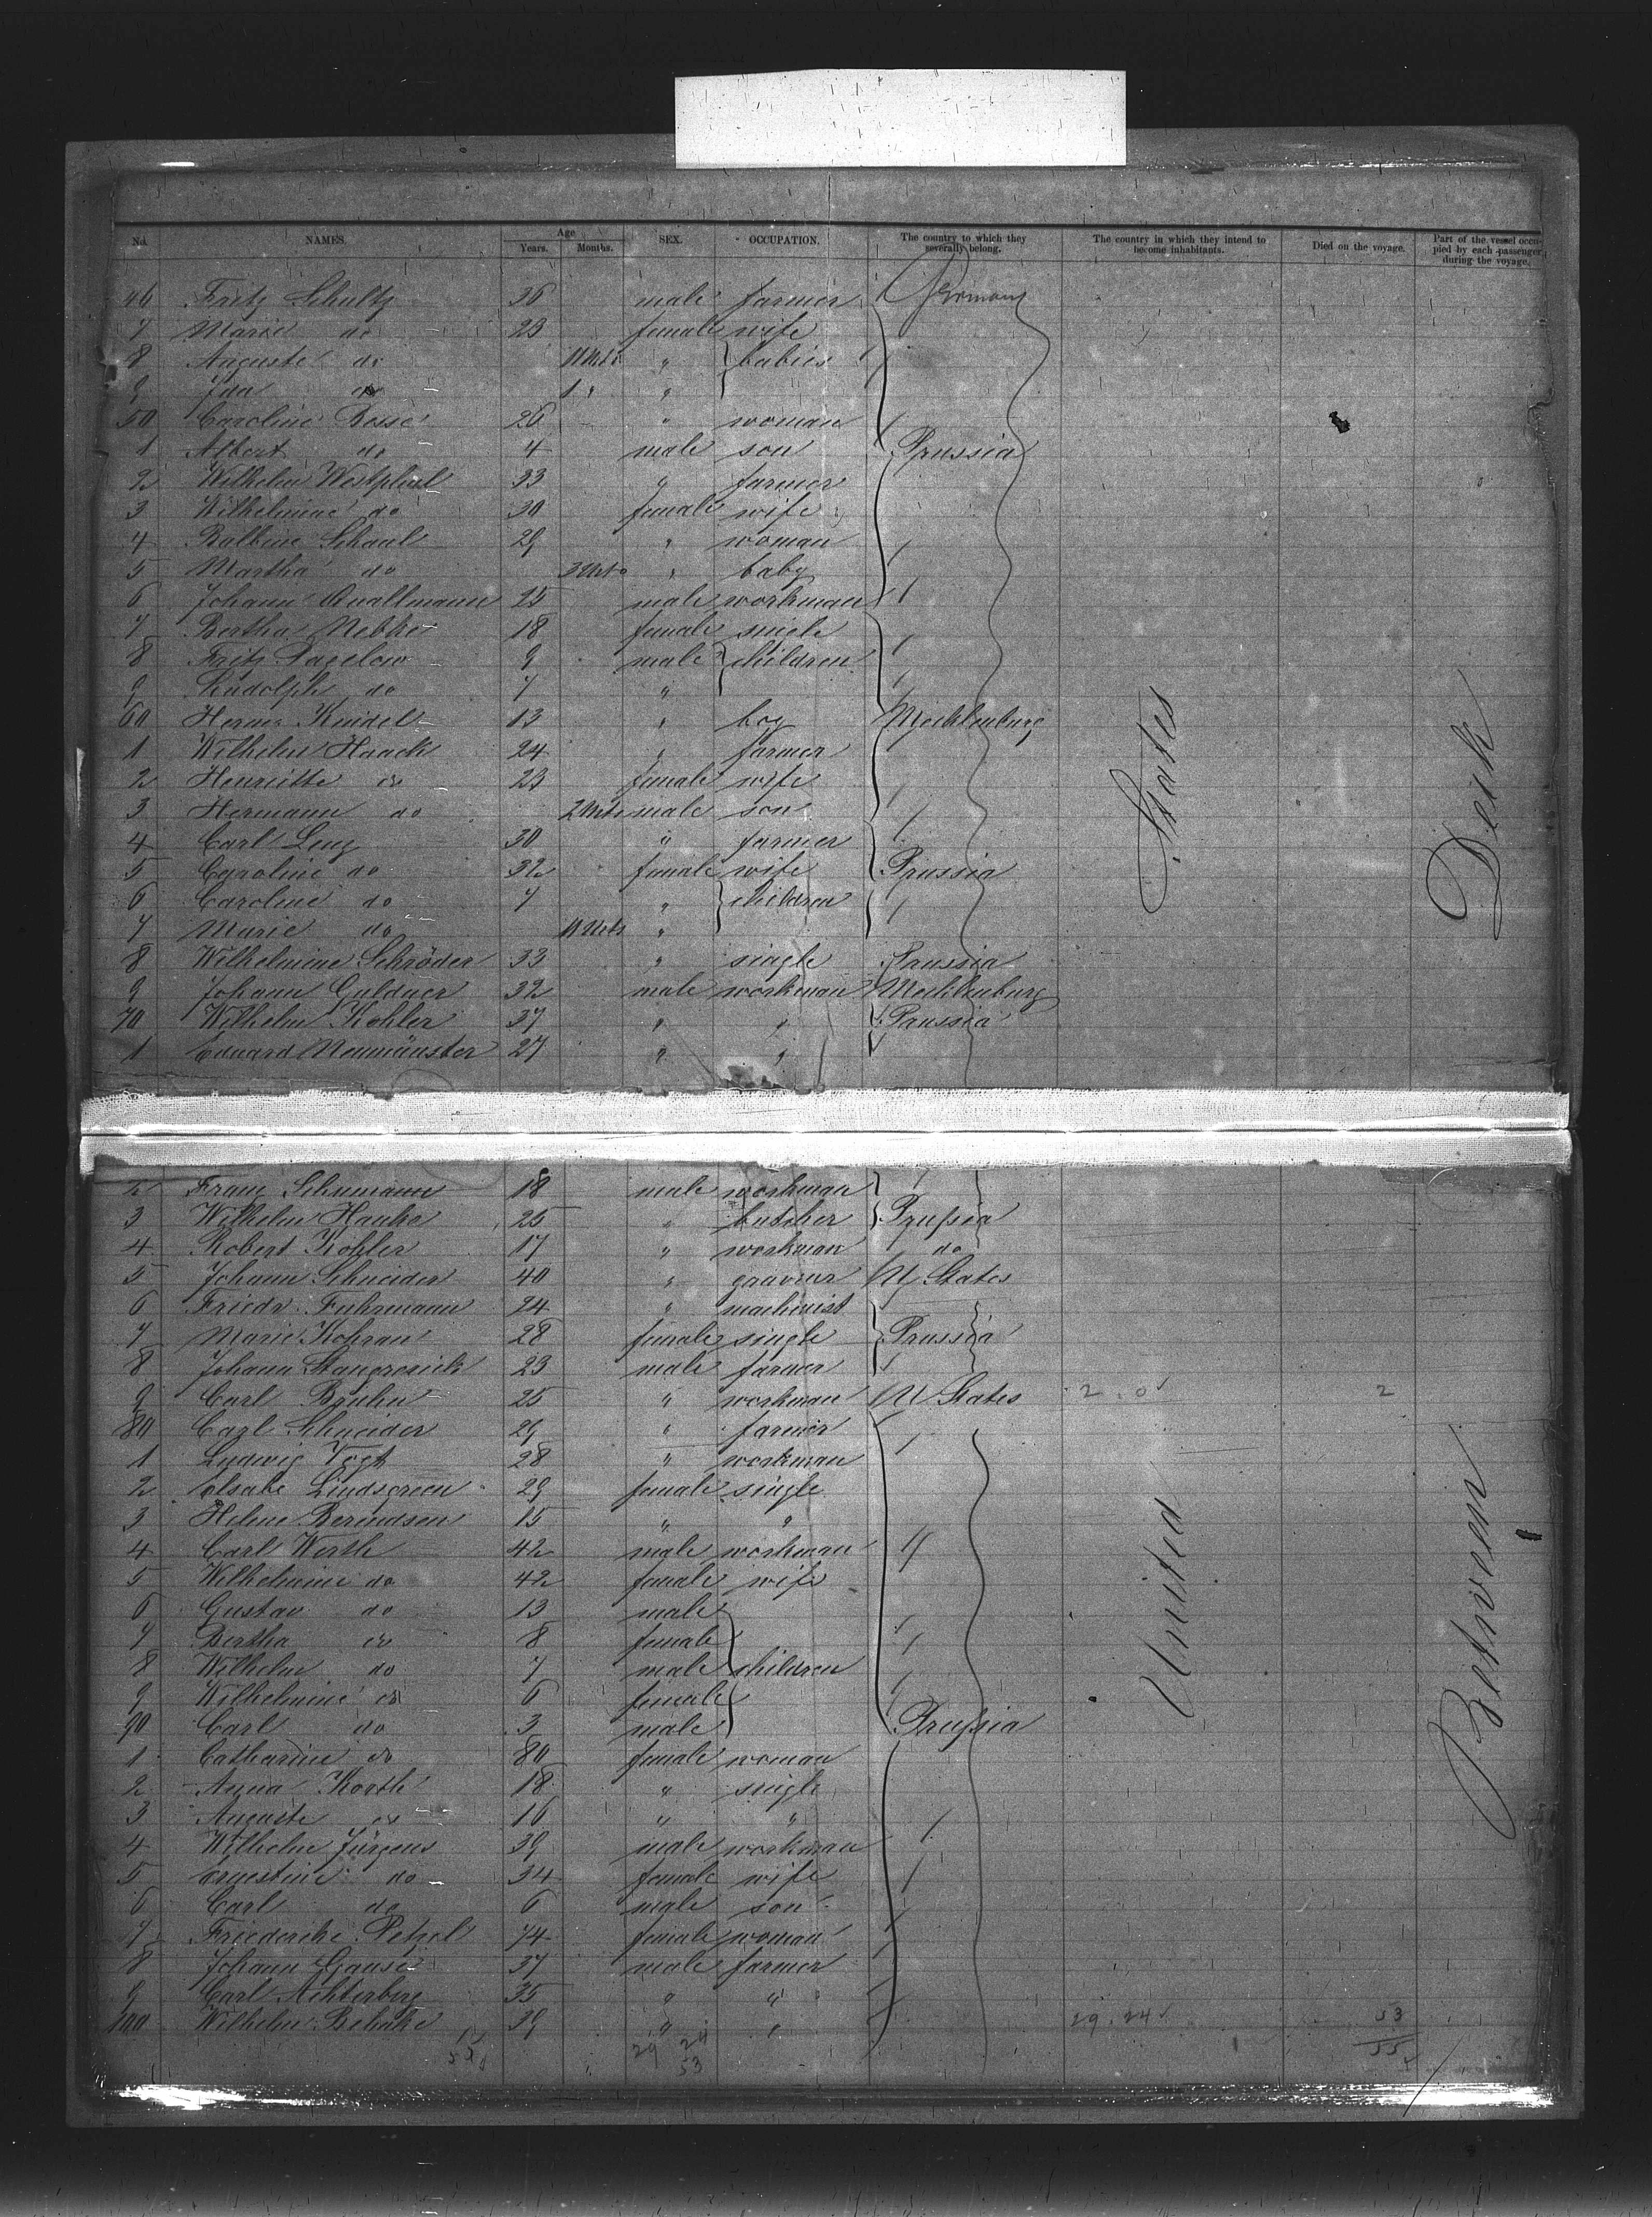 No. NAMES. Age Years. Months. SEX. OCCUPATION. The country to which they severally belong. The country in which they intend to become inhabitants. Died on the voyage. Part of the vessel occupied by each passenger during the voyage.
46 Fritz Schultz 36 male farmer Germany
7 Marie do 23 female wife
8 Auguste do 11 Mts " babies
9 Ida do 1 " "
50 Caroline Bosse 26 " woman
1 Albert do 4 male son Prussia
2 Wilhelm Westphal 33 " farmer
3 Wilhelmine do 30 female wife
4 Schaul 29 " woman
5 Martha do 3 Mts " baby
6 Johann Quallmann 25 male workman
7 Bertha Nebke 18 female single
8 Fritz Pagelow 9 male children
9 Rudolph do 7 "
60 Herm. Keidel 13 " boy Mecklenburg
1 Wilhelm Haack 24 " farmer
2 Henriette do 23 female wife
3 Hermann do 2 Mts male son
4 Carl Leng 30 " farmer
5 Caroline do 32 female wife Prussia
6 Caroline do 7 " children
7 Marie do 11 Mts "
8 Wilhelmine Schröder 33 " single Prussia
9 Johann 32 male workman Mecklenburg
70 Wilhelm Kohler 37 " " Prussia
1 Eduard Neumünster 27 " "
States
Deck
2 Franz Schumann 18 male workman
3 Wilhelm Hanke 25 " butcher Prussia
4 Robert Kohler 17 " workman do
5 Johann Schneider 40 " graveur U States
6 Friedr. Fuhrmann 24 " machinist
7 Marie Kohran 28 female single Prussia
8 Johann 23 male farmer
9 Carl Bruhn 25 " workman U States 2.0 2
80 Carl Schneider 29 " farmer
1 Ludwig Vogt 28 " workman
2 Elsabe Lindsgreen 29 female single
3 Helene Berendsen 15 " "
4 Carl Werth 42 male workman
5 Wilhelmine do 42 female wife
6 Gustav do 13 male
7 Bertha do 8 female
8 Wilhelm do 7 male children
9 Wilhelmine do 6 female
90 Carl do 3 male Prussia
1 Catharine do 80 female woman
2 Anna Korth 18 " single
3 Auguste do 16 " "
4 Wilhelm Jürgens 39 male workman
5 Ernestine do 34 female wife
6 Carl do 6 male son
7 Friedericke Petzel 74 female woman
8 Johann Gause 37 male farmer
9 Carl Achterberg 35 " "
100 Wilhelm Behnke 39 " " 29.24 53
29 24 55
53
United
Between